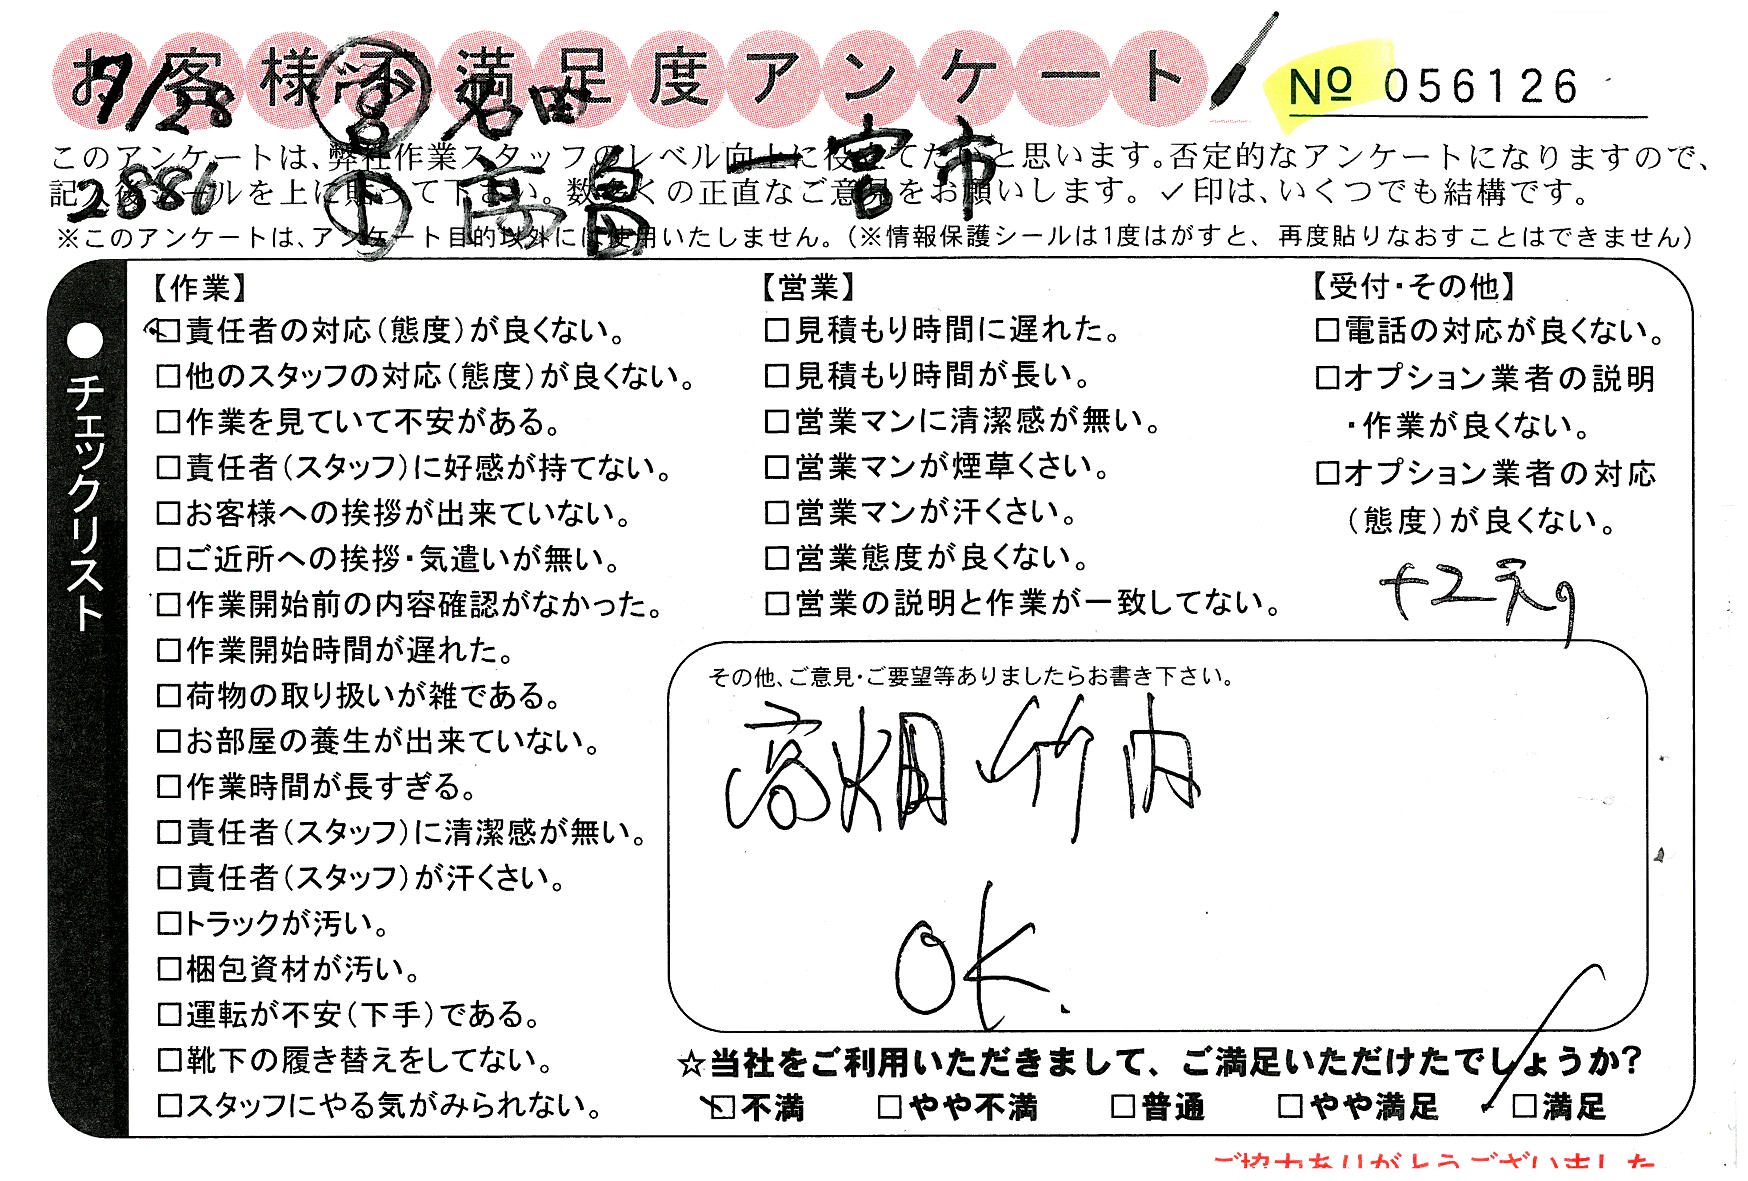 お客様満足度アンケート
№ 056126
7/28
2886
一宮市
このアンケートは、弊社作業スタッフのレベル向上に役立てたいと思います。否定的なアンケートになりますので、
記入後シールを上に貼って下さい。数多くの正直なご意見をお願いします。✓印は、いくつでも結構です。
※このアンケートは、アンケート目的以外には使用いたしません。（※情報保護シールは1度はがすと、再度貼りなおすことはできません）
●チェックリスト
【作業】
□責任者の対応（態度）が良くない。
□他のスタッフの対応（態度）が良くない。
□作業を見ていて不安がある。
□責任者（スタッフ）に好感が持てない。
□お客様への挨拶が出来ていない。
□ご近所への挨拶・気遣いが無い。
□作業開始前の内容確認がなかった。
□作業開始時間が遅れた。
□荷物の取り扱いが雑である。
□お部屋の養生が出来ていない。
□作業時間が長すぎる。
□責任者（スタッフ）に清潔感が無い。
□責任者（スタッフ）が汗くさい。
□トラックが汚い。
□梱包資材が汚い。
□運転が不安（下手）である。
□靴下の履き替えをしてない。
□スタッフにやる気がみられない。
【営業】
□見積もり時間に遅れた。
□見積もり時間が長い。
□営業マンに清潔感が無い。
□営業マンが煙草くさい。
□営業マンが汗くさい。
□営業態度が良くない。
□営業の説明と作業が一致してない。
【受付・その他】
□電話の対応が良くない。
□オプション業者の説明
・作業が良くない。
□オプション業者の対応
（態度）が良くない。
その他、ご意見・ご要望等ありましたらお書き下さい。
高畑 竹内
OK.
☆当社をご利用いただきまして、ご満足いただけたでしょうか?
□不満 □やや不満 □普通 □やや満足 □満足
ご協力ありがとうございました